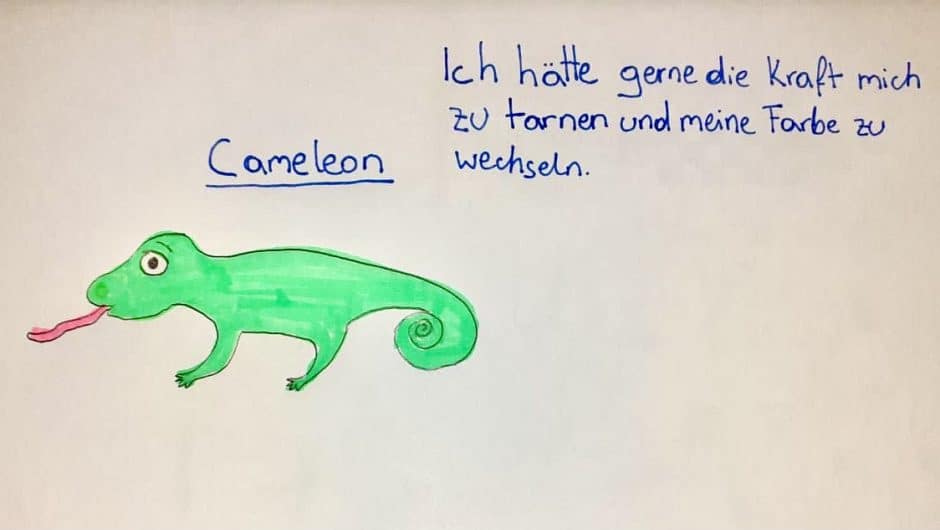 Ich hätte gerne die Kraft mich
zu tarnen und meine Farbe zu
wechseln.
Cameleon